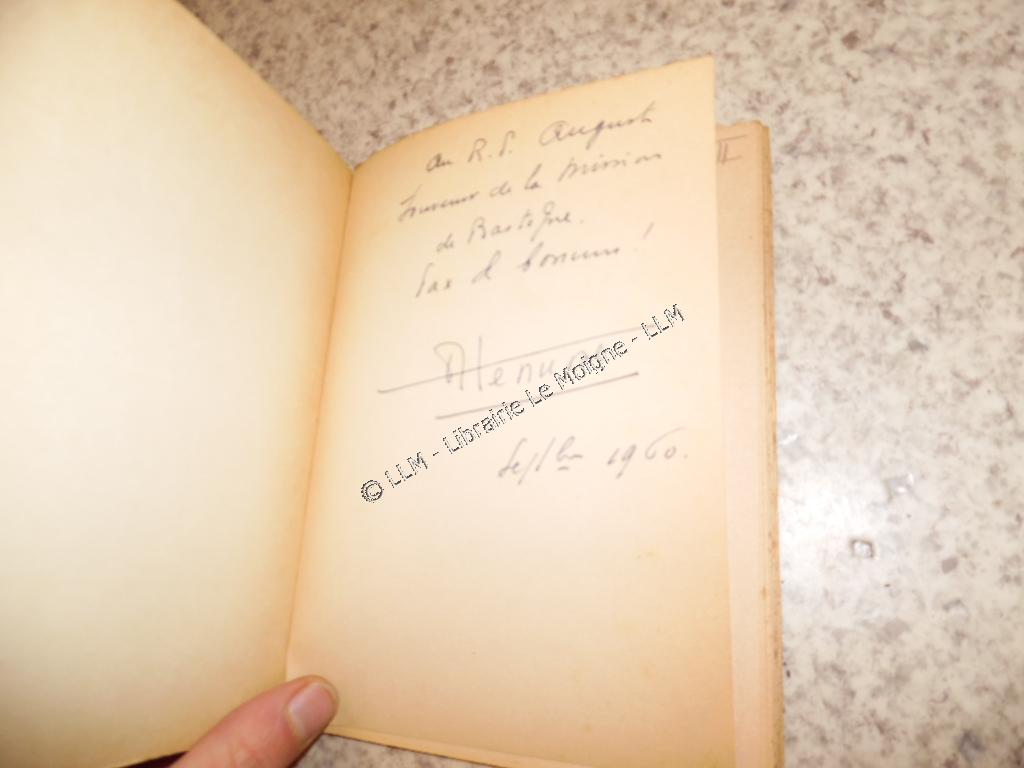 au R. P. August
Souvenir de la mission
de Bastogne.
Pax et bonum!
Septbre 1960.
© LLM - Librairie Le Moigne - LLM